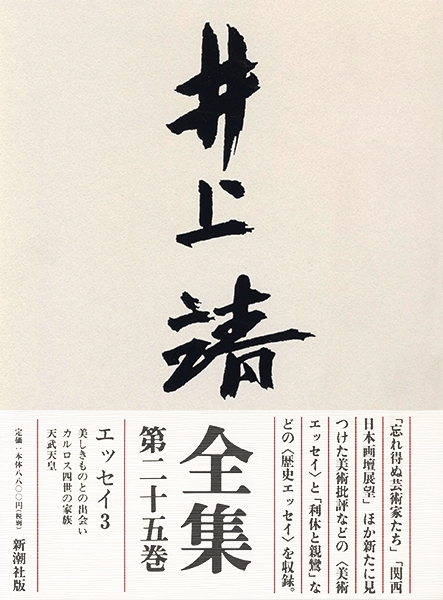 井上靖
「忘れ得ぬ芸術家たち」「関西
日本画壇展望」ほか新たに見
つけた美術批評などの〈美術
エッセイ〉と「利休と親鸞」な
どの〈歴史エッセイ〉を収録。
全集
第二十五巻
エッセイ3
美しきものとの出会い
カルロス四世の家族
天武天皇
定価：本体八八〇〇円（税別）
新潮社版